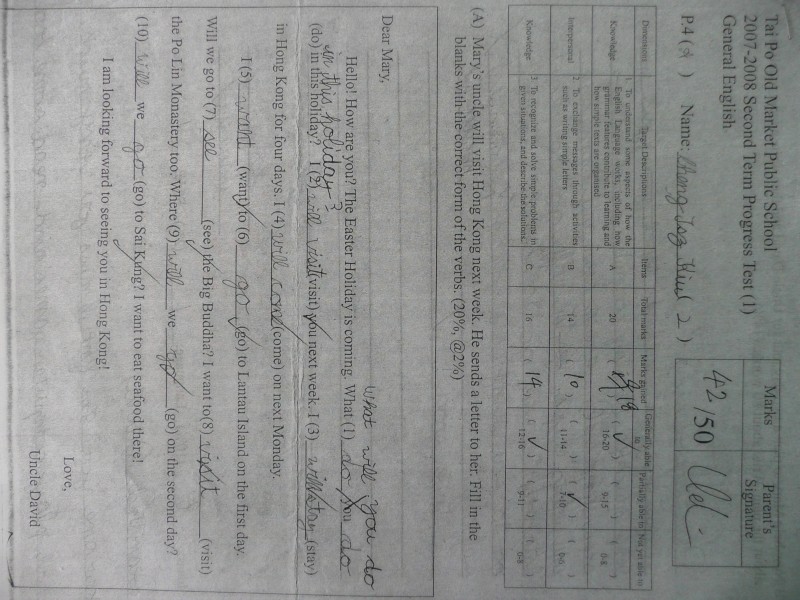 Tai Po Old Market Public School
2007-2008 Second Term Progress Test (1)
General English
P.4 ( ) Name: ( 2 )
Marks Parent's Signature
42/50
Dimensions Target Descriptions Items Total marks Marks gained Generally able to Partially able to Not yet able to
Knowledge 1. To understand some aspects of how the English Language works, including how grammar features contribute to learning and how simple texts are organised A 20 ( 18 ) ( ✓ ) 16-20 ( ) 9-15 ( ) 0-8
Interpersonal 2. To exchange messages through activities such as writing simple letters B 14 ( 10 ) ( ) 11-14 ( ✓ ) 7-10 ( ) 0-6
Knowledge 3. To recognize and solve simple problems in given situations, and describe the solutions. C 16 ( 14 ) ( ✓ ) 12-16 ( ) 9-11 ( ) 0-8
(A) Mary's uncle will visit Hong Kong next week. He sends a letter to her. Fill in the
blanks with the correct form of the verbs. (20%, @2%)
Dear Mary,
what will you do
Hello! How are you? The Easter Holiday is coming. What (1) do you do
in this holiday?
(do) in this holiday? I (2) will visit (visit) you next week. I (3) will stay (stay)
in Hong Kong for four days. I (4) will come (come) on next Monday.
I (5) want (want) to (6) go (go) to Lantau Island on the first day.
Will we go to (7) see (see) the Big Buddha? I want to (8) visit (visit)
the Po Lin Monastery too. Where (9) will we go (go) on the second day?
(10) will we go (go) to Sai Kung? I want to eat seafood there!
I am looking forward to seeing you in Hong Kong!
Love,
Uncle David